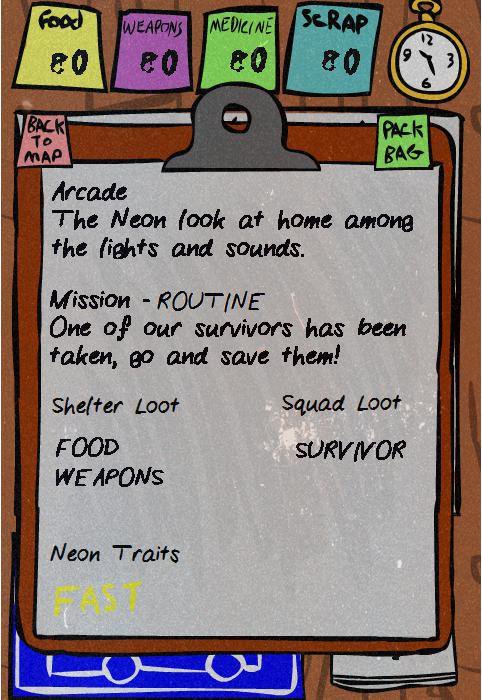 Food
80
WEAPONS
80
MEDICINE
80
SCRAP
80
12
3
6
9
BACK
TO
MAP
PACK
BAG
Arcade
The Neon look at home among
the lights and sounds.
Mission - ROUTINE
One of our survivors has been
taken, go and save them!
Shelter Loot
Squad Loot
FOOD
SURVIVOR
WEAPONS
Neon Traits
FAST